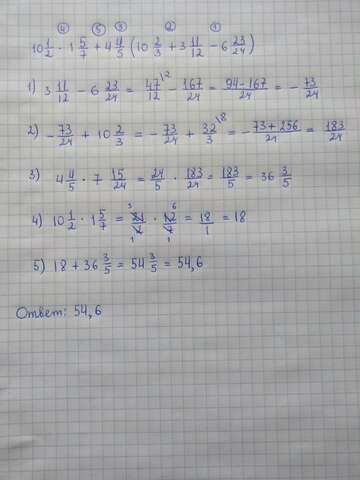 ④ ⑤ ③ ② ①
10 1/2 · 1 5/7 + 4 4/5 (10 2/3 + 3 11/12 - 6 23/24)
1) 3 11/12 - 6 23/24 = 47/12 \2 - 167/24 = 94-167/24 = - 73/24
2) - 73/24 + 10 2/3 = - 73/24 + 32/3 \8 = - 73+256/24 = 183/24
3) 4 4/5 · 7 15/24 = 24/5 · 183/24 = 183/5 = 36 3/5
4) 10 1/2 · 1 5/7 = 3 21/2 1 · 6 12/7 1 = 18/1 = 18
5) 18 + 36 3/5 = 54 3/5 = 54,6
Ответ: 54,6